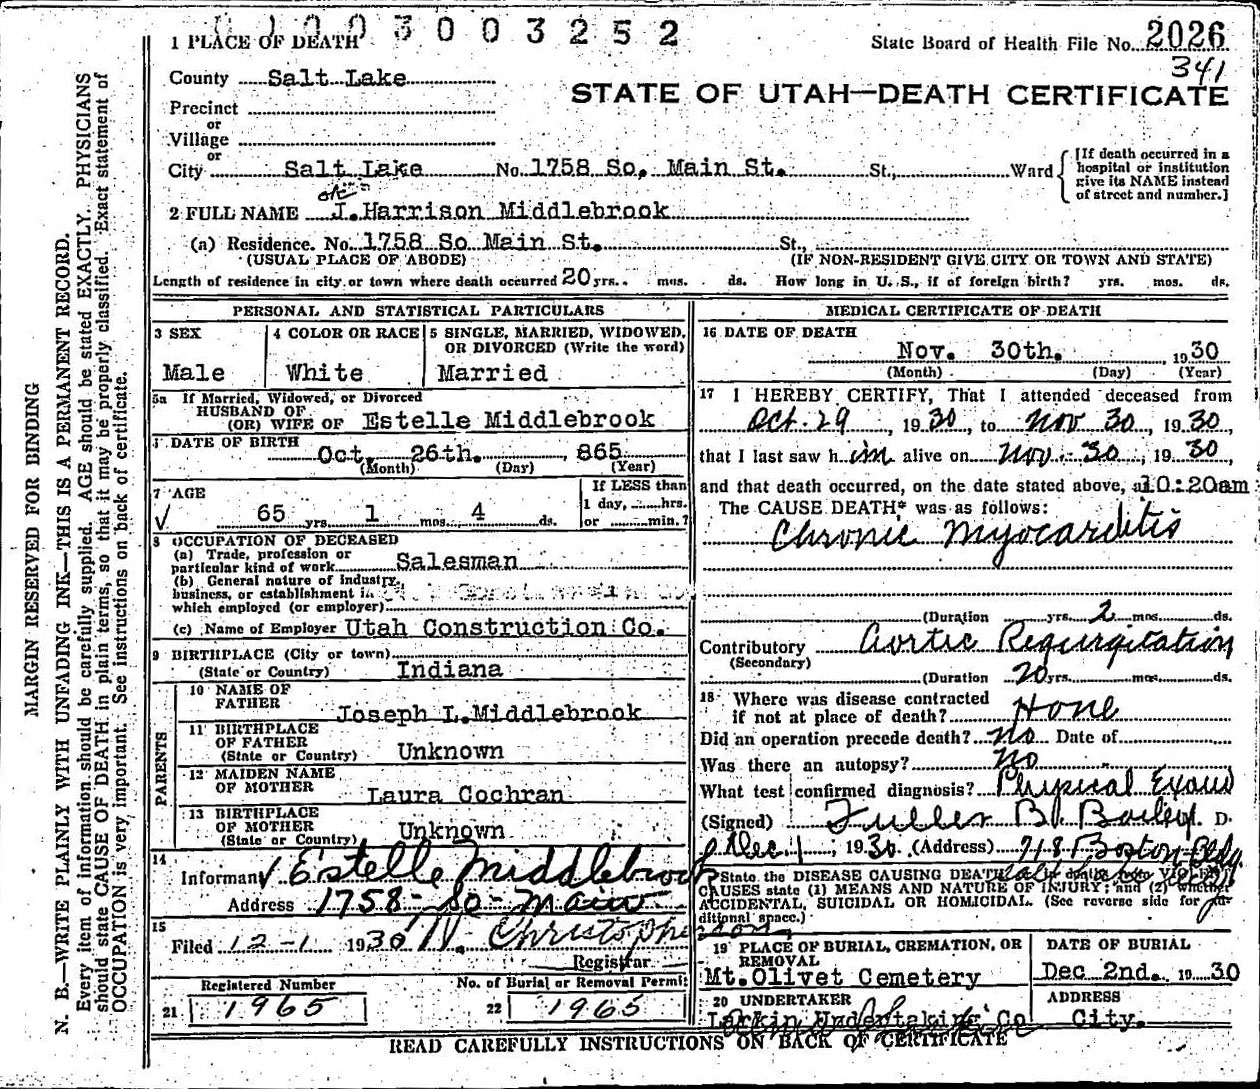 0 1 0 0 3 0 0 3 2 5 2
1 PLACE OF DEATH
State Board of Health File No. 2026
341
County Salt Lake
STATE OF UTAH—DEATH CERTIFICATE
Precinct
or
Village
or
City Salt Lake No. 1758 So. Main St. St., Ward
[If death occurred in a hospital or institution give its NAME instead of street and number.]
2 FULL NAME J. Harrison Middlebrook
(a) Residence. No. 1758 So Main St. St.,
(USUAL PLACE OF ABODE) (IF NON-RESIDENT GIVE CITY OR TOWN AND STATE)
Length of residence in city or town where death occurred 20 yrs. mos. ds. How long in U. S., if of foreign birth? yrs. mos. ds.
PERSONAL AND STATISTICAL PARTICULARS
3 SEX
Male
4 COLOR OR RACE
White
5 SINGLE, MARRIED, WIDOWED,
OR DIVORCED (Write the word)
Married
5a If Married, Widowed, or Divorced
HUSBAND OF
(OR) WIFE OF Estelle Middlebrook
DATE OF BIRTH
Oct. 26th. , 865
(Month) (Day) (Year)
7 AGE
√ 65 yrs. 1 mos. 4 ds.
If LESS than
1 day, hrs.
or min.?
8 OCCUPATION OF DECEASED
(a) Trade, profession or
particular kind of work Salesman
(b) General nature of industry,
business, or establishment in
which employed (or employer)
(c) Name of Employer Utah Construction Co.
9 BIRTHPLACE (City or town)
(State or Country) Indiana
PARENTS
10 NAME OF
FATHER Joseph L. Middlebrook
11 BIRTHPLACE
OF FATHER
(State or Country) Unknown
12 MAIDEN NAME
OF MOTHER Laura Cochran
13 BIRTHPLACE
OF MOTHER
(State or Country) Unknown
14
Informant Estelle Middlebrook
Address 1758-So-Main
15
Filed 12-1 1930 Christophe
Registrar
Registered Number
21 1965
No. of Burial or Removal Permit
22 1965
MEDICAL CERTIFICATE OF DEATH
16 DATE OF DEATH
Nov. 30th. , 1930
(Month) (Day) (Year)
17 I HEREBY CERTIFY, That I attended deceased from
Oct. 29 , 1930, to Nov 30, 1930,
that I last saw him alive on Nov. 30, 1930,
and that death occurred, on the date stated above, at 10:20am
The CAUSE DEATH* was as follows:
Chronic Myocarditis
(Duration yrs. 2 mos. ds.
Contributory Aortic Regurgitation
(Secondary)
(Duration 20 yrs. mos. ds.
18 Where was disease contracted
if not at place of death? Home
Did an operation precede death? No Date of
Was there an autopsy? No
What test confirmed diagnosis? Physical Exam
(Signed) Fuller B. Bailey D.
Dec 1, 1930. (Address) 718 Boston Bldg.
State the DISEASE CAUSING DEATH
CAUSES state (1) MEANS AND NATURE OF INJURY; and (2) whether
ACCIDENTAL, SUICIDAL OR HOMICIDAL. (See reverse side for
ditional space.)
19 PLACE OF BURIAL, CREMATION, OR
REMOVAL
Mt. Olivet Cemetery
DATE OF BURIAL
Dec 2nd. 1930
20 UNDERTAKER
Larkin Undertaking Co
ADDRESS
City.
READ CAREFULLY INSTRUCTIONS ON BACK OF CERTIFICATE
MARGIN RESERVED FOR BINDING
N. B.—WRITE PLAINLY WITH UNFADING INK—THIS IS A PERMANENT RECORD.
Every item of information should be carefully supplied. AGE should be stated EXACTLY. PHYSICIANS
should state CAUSE OF DEATH in plain terms, so that it may be properly classified. Exact statement of
OCCUPATION is very important. See instructions on back of certificate.